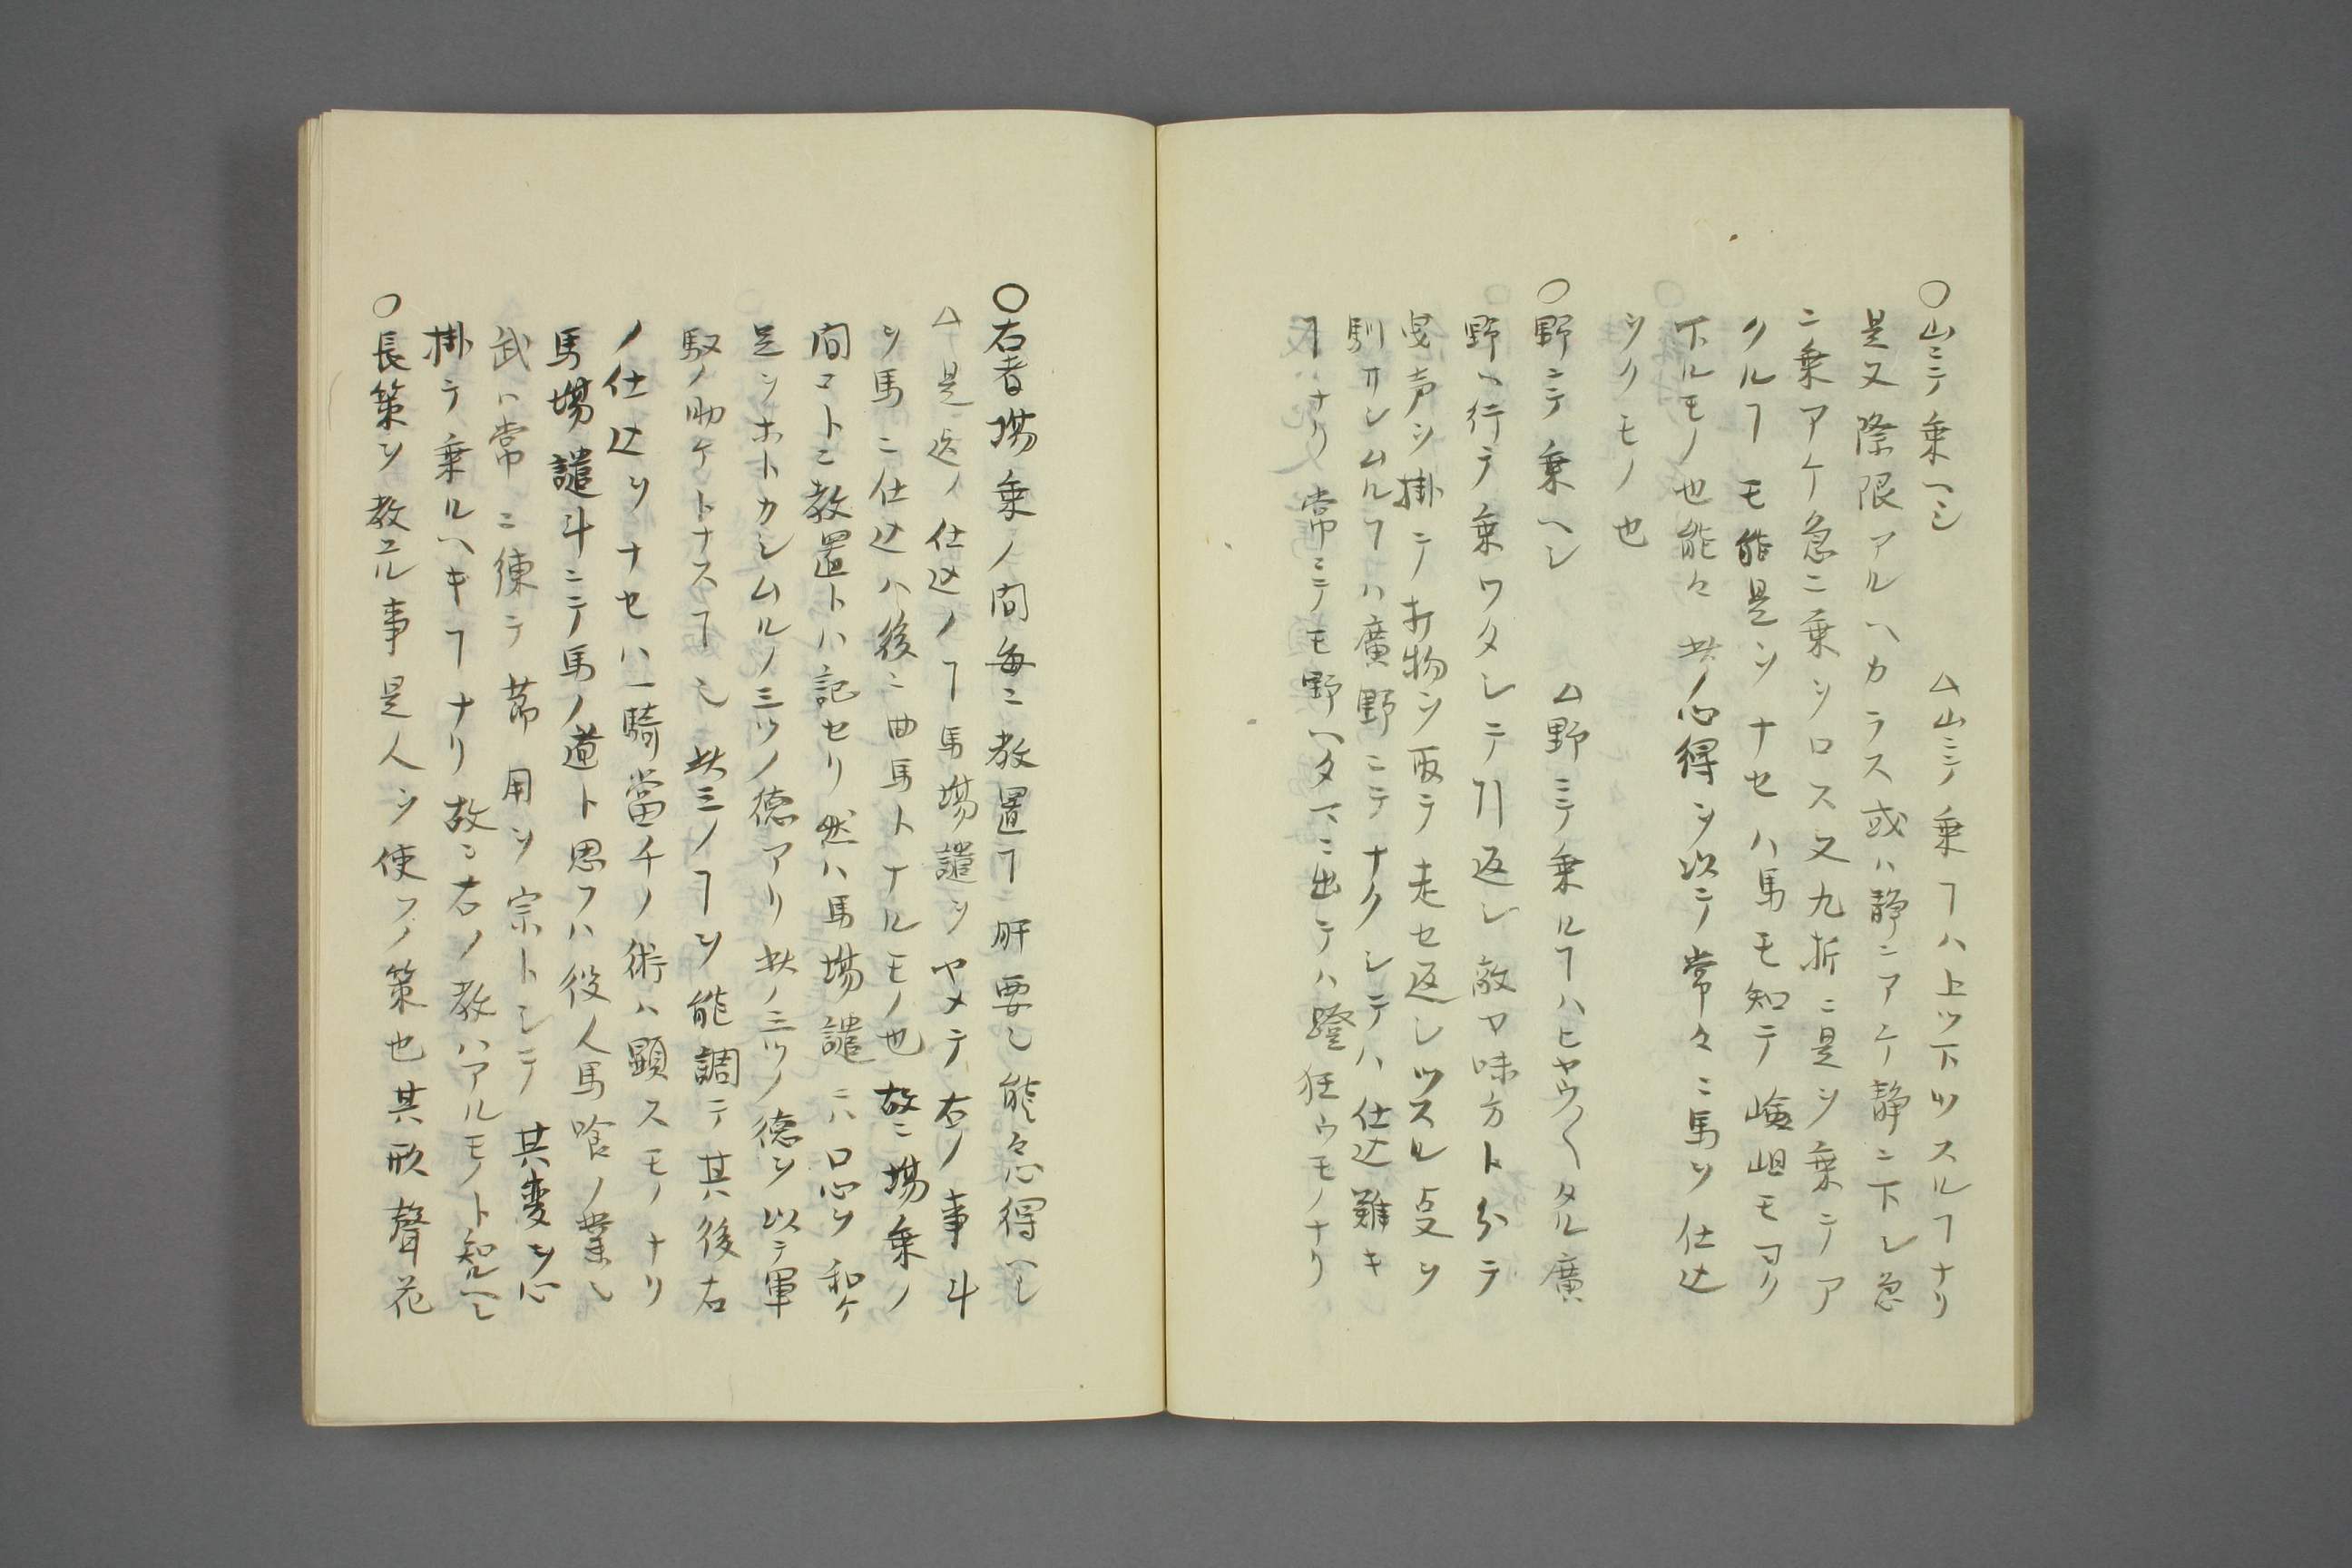 〇山ニテ乗ヘシ　　　　△山ニテ乗ヿハ上ツ下ツスルヿナリ
是又際限アルヘカラス或ハ静ニアケ静ニ下シ急
ニ乗アケ急ニ乗ヲロス又九折ニ是ヲ乗テア
クルヿモ能是ヲナセハ馬モ知テ嶮岨モヨク
下ルモノ也能々此ノ心得ヲ以テ常々ニ馬ヲ仕込
ヲクモノ也
〇野ニテ乗ヘシ　　　△野ニテ乗ルヿハヒヤウ〱タル廣
野ヘ行テ乗ワタシテ引返シ敵ヤ味方ト分テ
曳声ヲ掛テ打物ヲ取テ走セ返シツスル㕝ヲ
馴サシムルヿハ廣野ニテナクシテハ仕込難キ
ヿナリ常ニテモ野ヘタマニ出テハ蹬狂ウモノナリ
〇右者場乗ノ間毎ニ教置ヿ肝要也能々心得ヘシ
△是迄ノ仕込ノヿ馬場譴ヲヤメテ右ノ事斗
ヲ馬ニ仕込ハ後ニ曲馬トナルモノ也故ニ場乗ノ
間コトニ教置トハ記セリ然ハ馬場譴ニハ口心ヲ和ケ
足ヲホトカシムルノ三ツノ徳アリ此ノ三ツノ徳ヲ以テ軍
馭ノ助ケトナスヿ也此三ノヿヲ能調テ其後右
ノ仕込ヲナセハ一騎當千ノ術ハ顕スモノナリ
馬場譴斗ニテ馬ノ道ト思フハ役人馬喰ノ業也
武ハ常ニ練テ節用ヲ宗トシテ其変ヲ心
掛テ乗ルヘキヿナリ故ニ右ノ教ハアルモノト知ルヘシ
〇長策ヲ教ユル事是人ヲ使フノ策也其形聲花